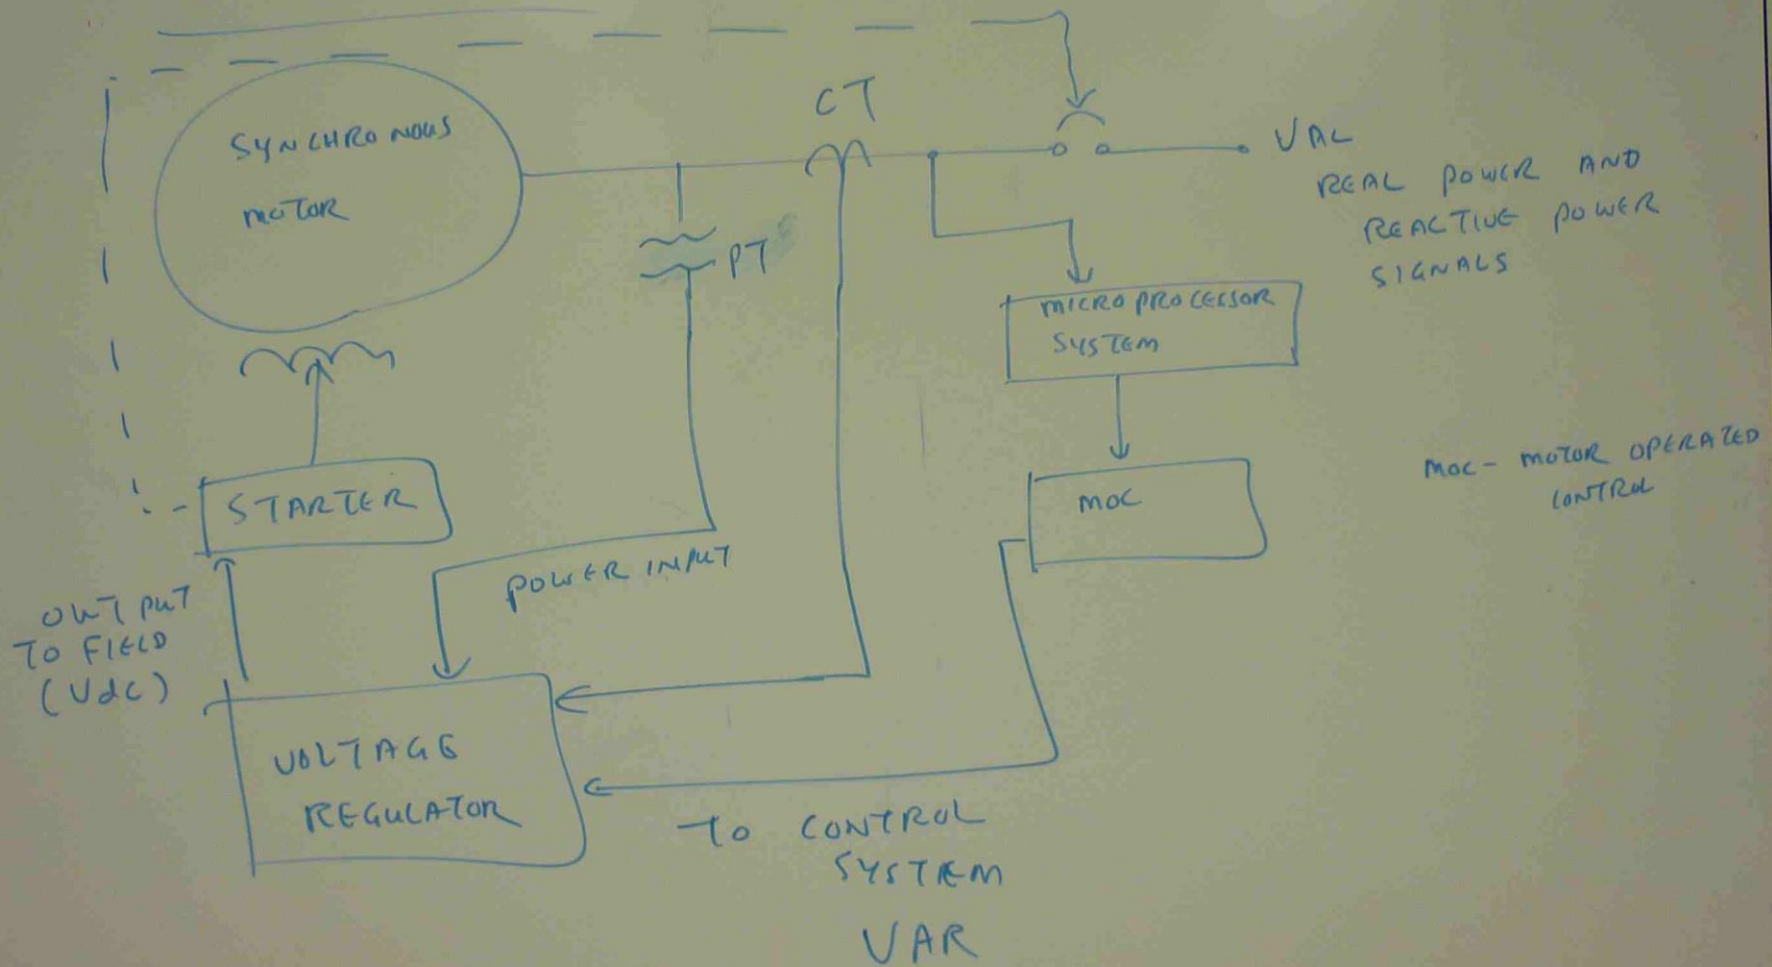 CT
SYNCHRONOUS
MOTOR
VAC
REAL POWER AND
REACTIVE POWER
SIGNALS
PT
MICROPROCESSOR
SYSTEM
MOC - MOTOR OPERATED
CONTROL
STARTER
MOC
POWER INPUT
OUTPUT
TO FIELD
(Vdc)
VOLTAGE
REGULATOR
TO CONTROL
SYSTEM
VAR